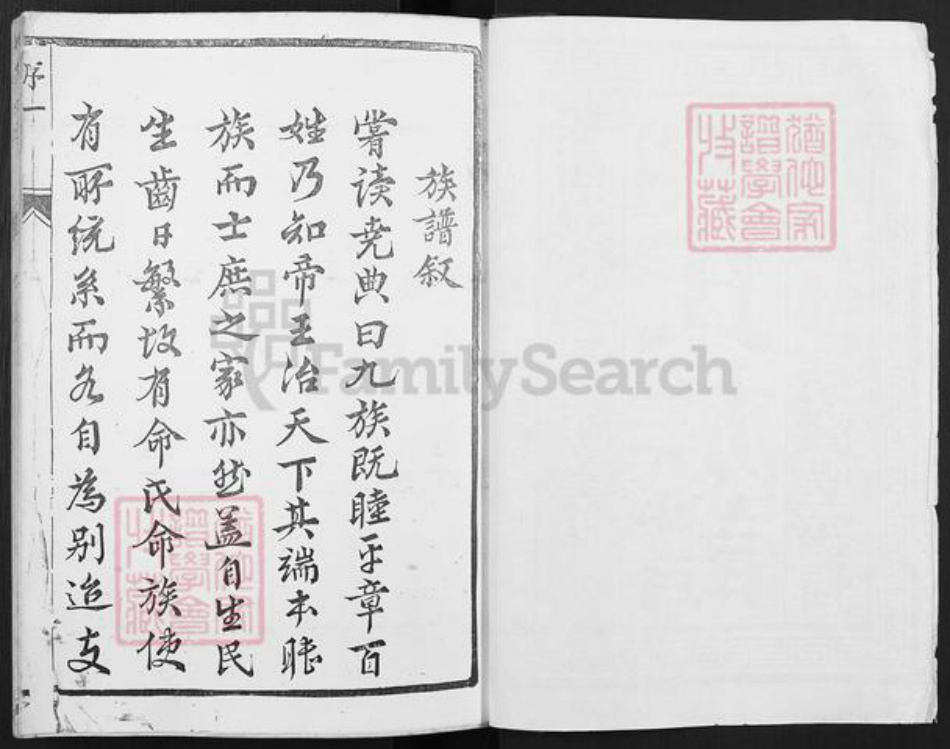 族譜叙
嘗读尭典曰九族既睦平章百
姓乃知帝王治天下其端本睦
族而士庶之家亦然盖自生民
生齒日繁故有命氏命族使
有所統系而各自為别迨支
序一
FamilySearch
譜學會
收藏